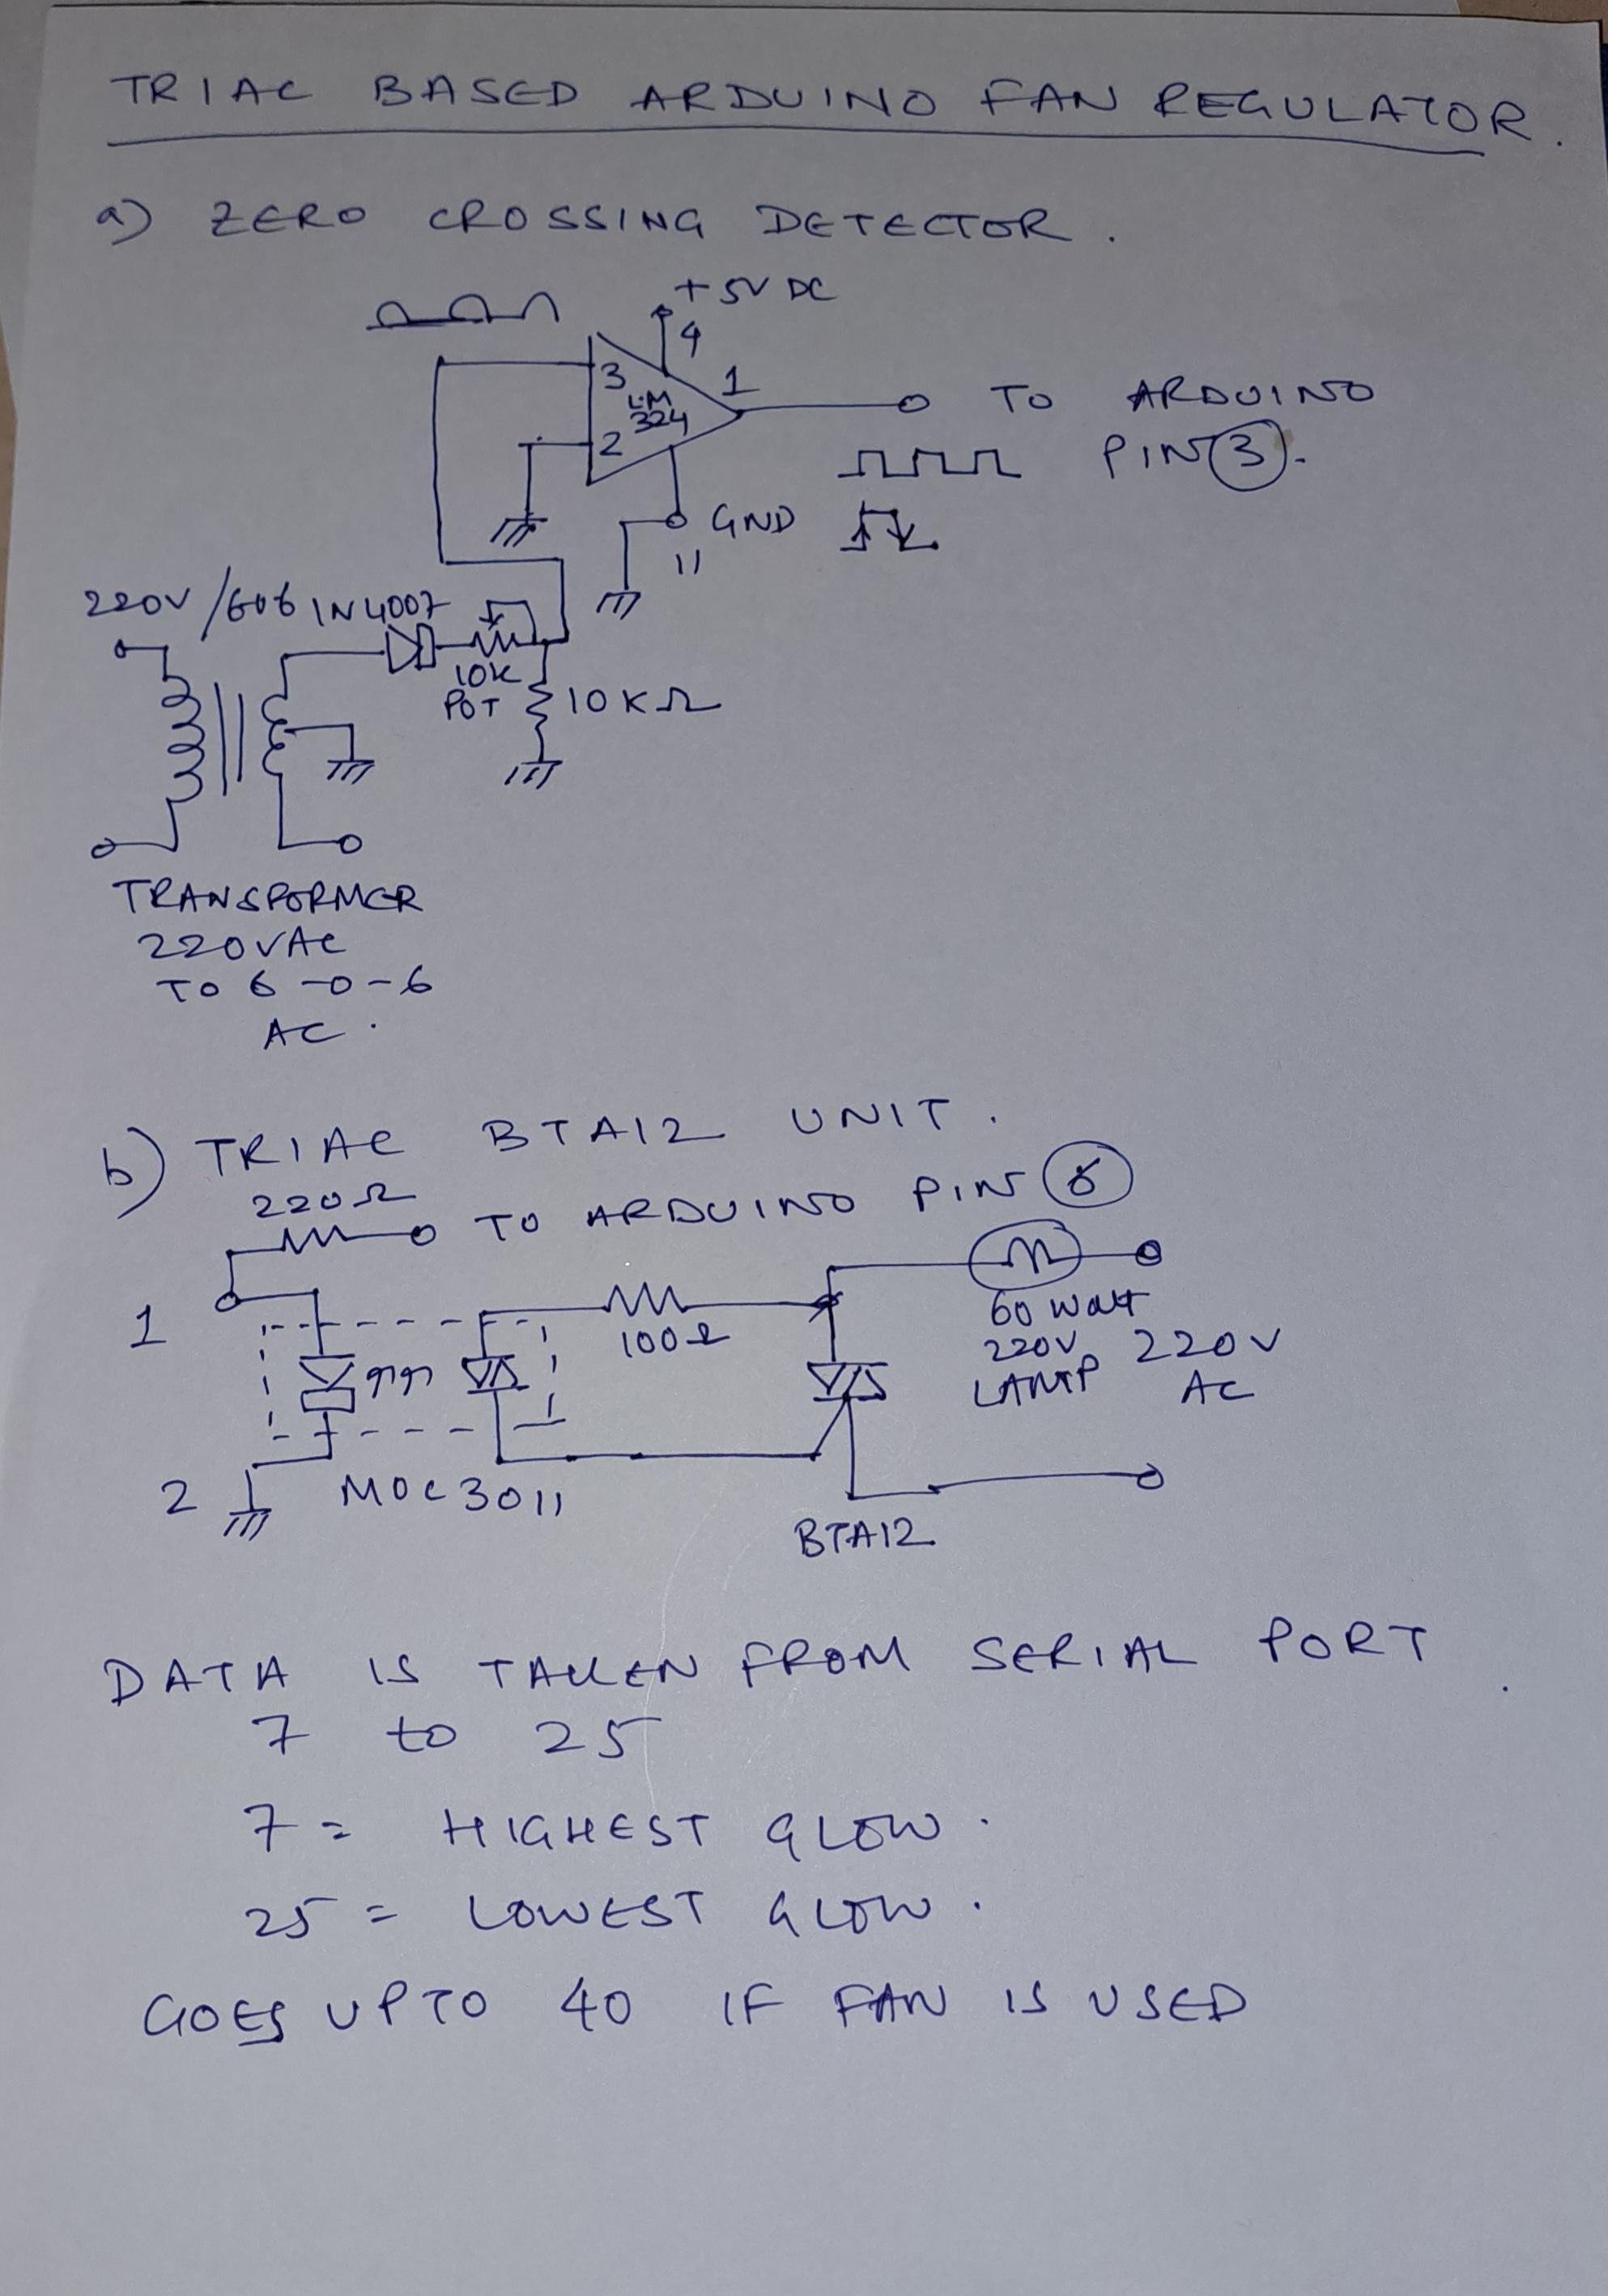 TRIAC BASED ARDUINO FAN REGULATOR.
a) ZERO CROSSING DETECTOR.
+5V DC
4
3
1
LM
324
2
TO ARDUINO
PIN 3.
GND
11
220V/606 IN4007
10K
POT
10KΩ
TRANSFORMER
220VAC
TO 6-0-6
AC.
b) TRIAC BTA12 UNIT.
220Ω
TO ARDUINO PIN 6
1
100Ω
60 WATT
220V
LAMP
220V
AC
2
MOC3011
BTA12
DATA IS TAKEN FROM SERIAL PORT.
7 to 25
7 = HIGHEST GLOW.
25 = LOWEST GLOW.
GOES UPTO 40 IF FAN IS USED